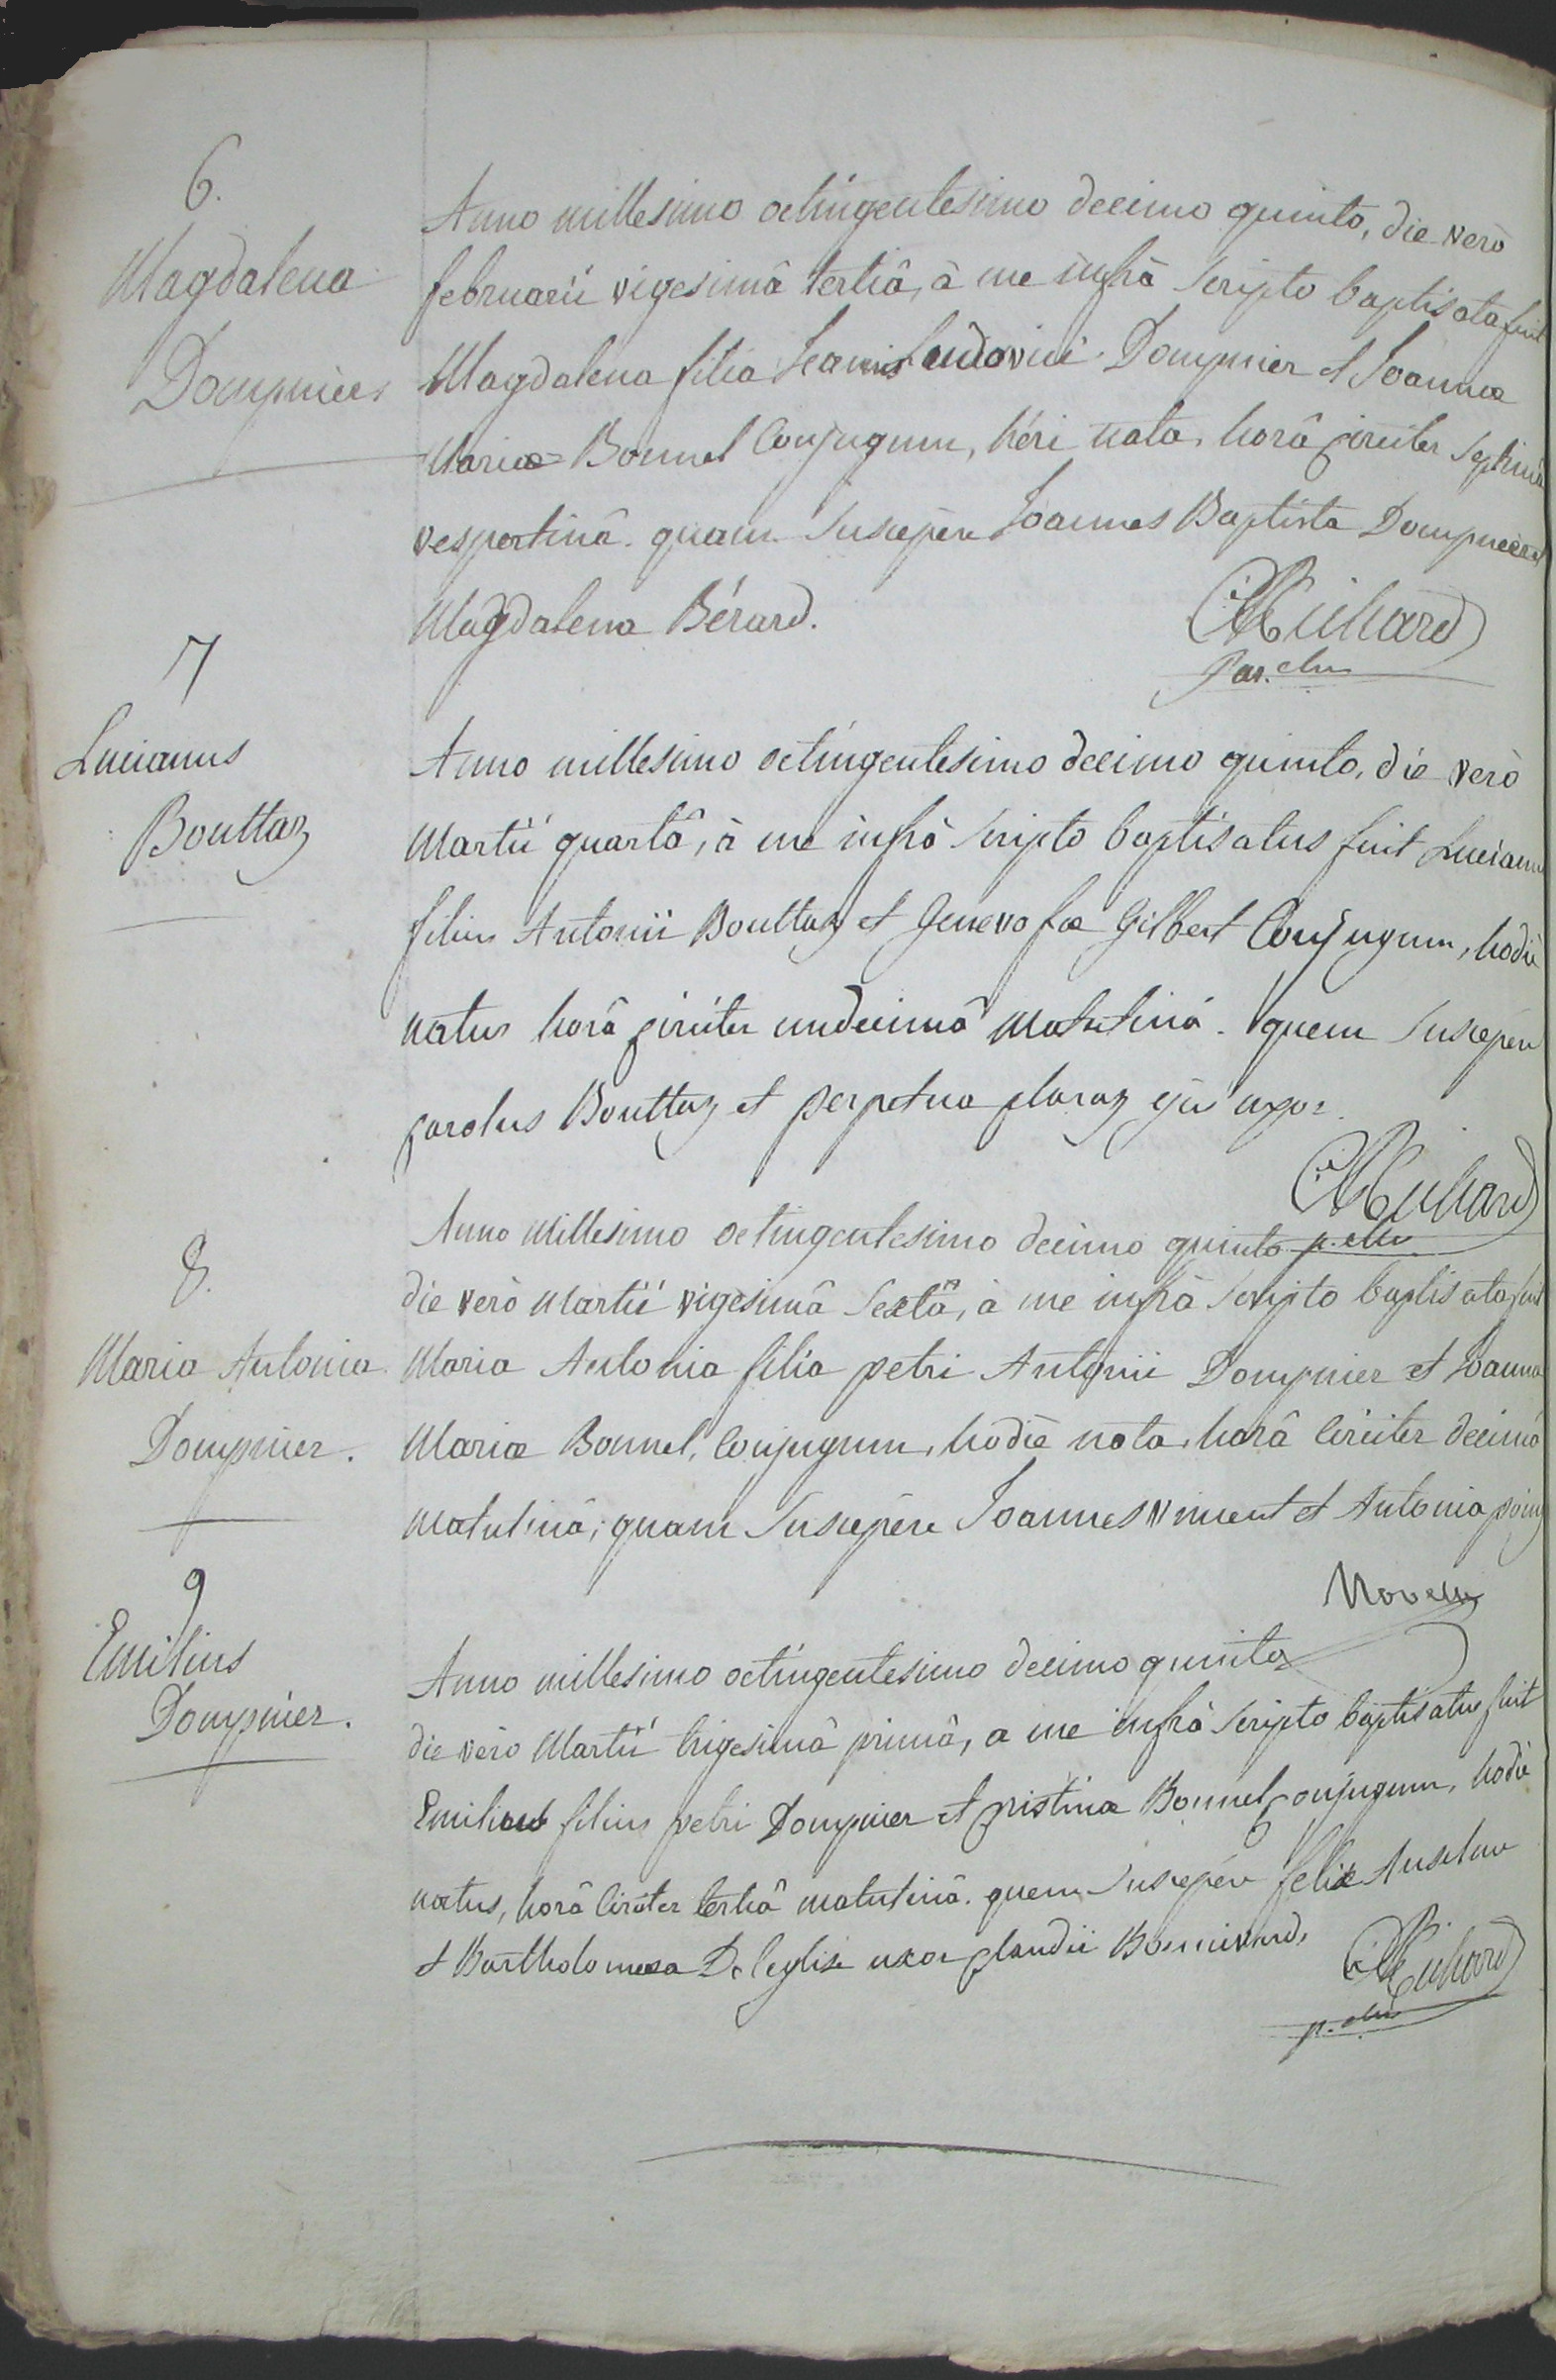 6.
Magdalena
Dompnier
Anno millesimo octingentesimo decimo quinto, die verò
februarii vigesimâ tertiâ, à me infrà scripto baptisata fuit
Magdalena filia Joannis Ludovici Dompnier et Joannæ
Mariæ Bonnel Conjugum, héri nata, horâ circiter septimâ
vespertinâ. quam suscepêre Joannes Baptista Dompnier et
Magdalena Bérard.
Richard
Par. chus
7
Lucianus
Bouttaz
Anno millesimo octingentesimo decimo quinto, die verò
Martii quartâ, à me infrà scripto baptisatus fuit Lucianus
filius Antonii Bouttaz et Genevofæ Gilbert Conjugum, hodiè
natus horâ circiter undecimâ matutinâ. quem suscepêre
Carolus Bouttaz et perpetua Claraz ejus uxor.
Richard
p. chus
8.
Maria Antonia
Dompnier.
Anno Millesimo octingentesimo decimo quinto
die verò Martii vigesimâ sextâ, à me infrà scripto baptisata fuit
Maria Antonia filia petri Antonii Dompnier et Joannæ
Mariæ Bonnel, Conjugum, hodiè nata, horâ Circiter decimâ
matutinâ; quam suscepêre Joannes vincent et Antonia
Novell
9
Emilius
Dompnier.
Anno millesimo octingentesimo decimo quinto
die verò Martii trigesimâ primâ, a me infrà scripto baptisatus fuit
Emilius filius petri Dompnier et Cristinæ Bonnel Conjugum, hodiè
natus, horâ Circiter tertiâ matutinâ. quem suscepêre felix Anselme
et Bartholomæa Deleglise uxor Claudii Bonnivard.
Richard
p. chus